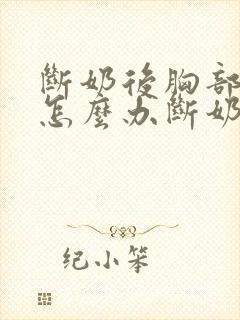 斷奶後胸部
怎麼办斷奶
纪小笨